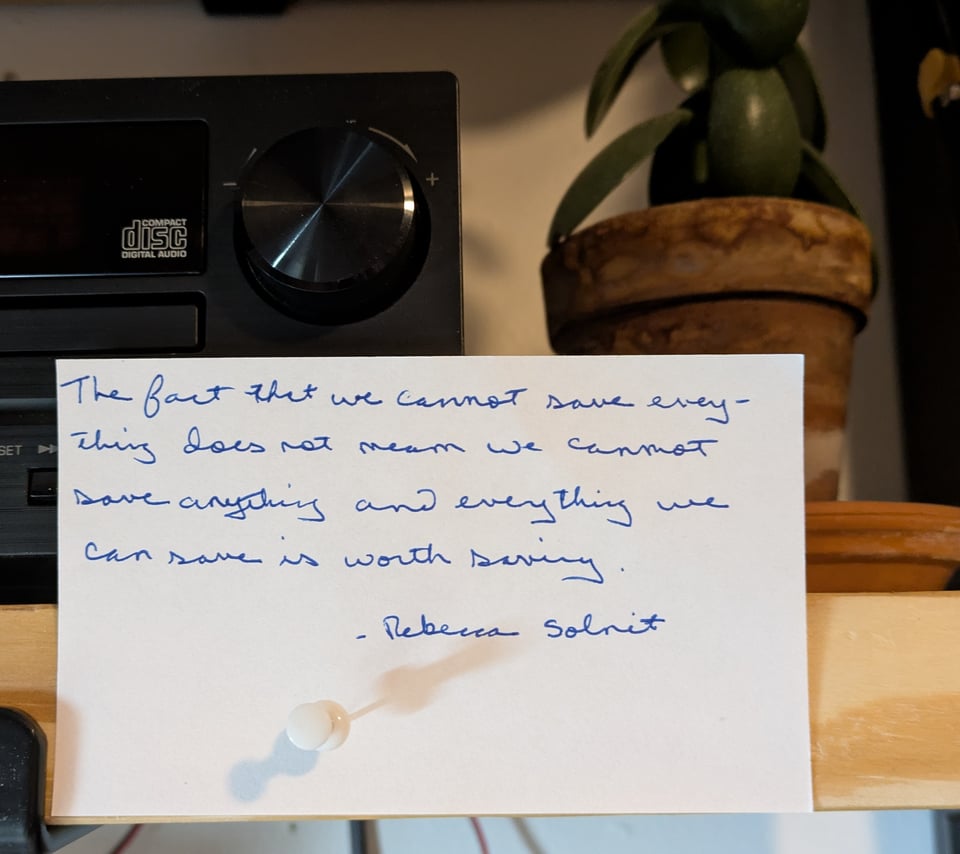 COMPACT
disc
DIGITAL AUDIO
- +
SET
The fact that we cannot save every-
thing does not mean we cannot
save anything and everything we
can save is worth saving.
- Rebecca Solnit